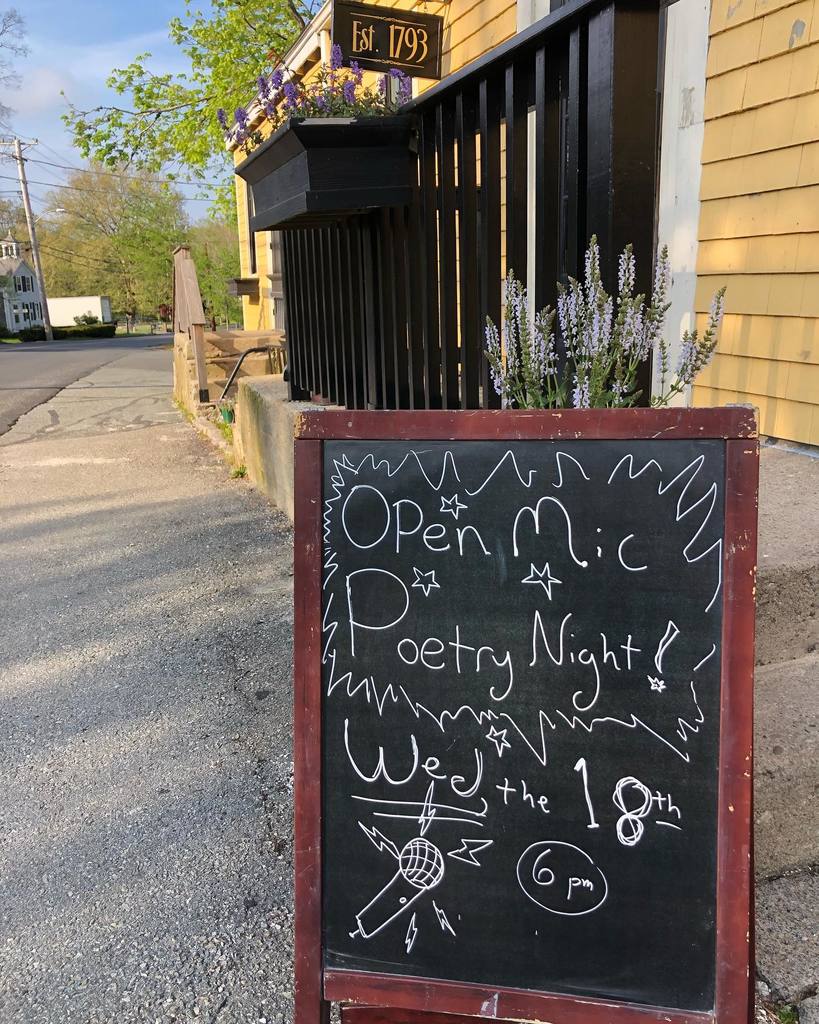 Est. 1793
Open Mic
Poetry Night!
Wed the 18th
6 pm